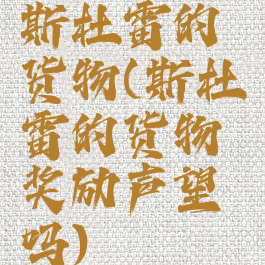 斯杜雷的
货物(斯杜
雷的货物
奖励声望
吗)